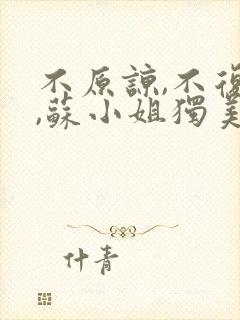 不原諒,不復
,蘇小姐獨美
什青